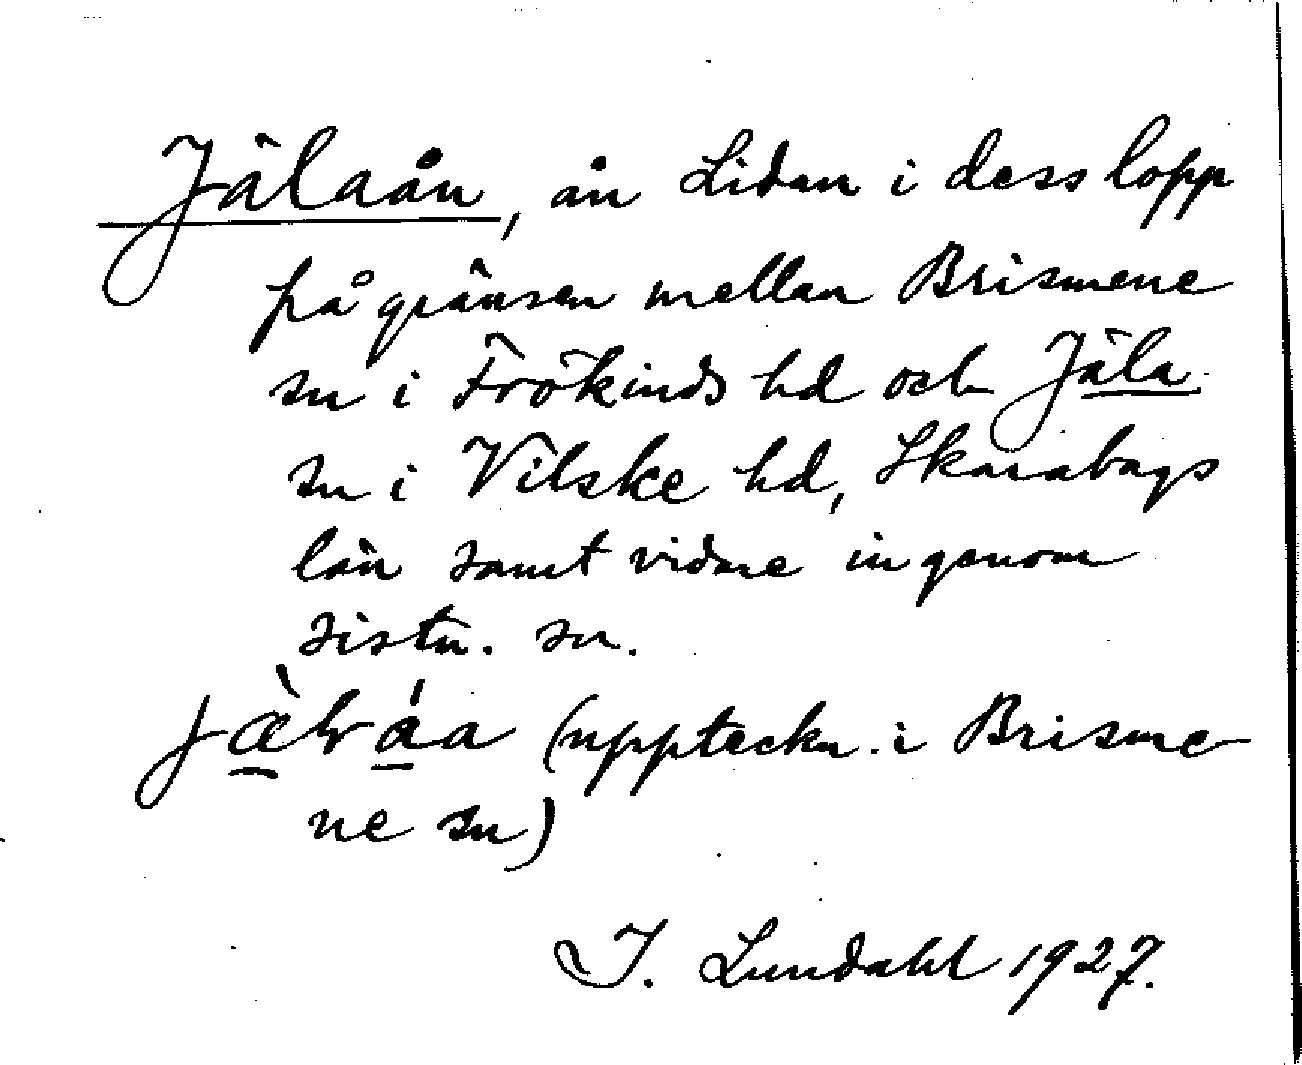 Jälaån, ån Lidan i dess lopp
på gränsen mellan Brismene
sn i Frökinds hd och Jäla
sn i Vilske hd, Skarabogs
län samt vidare in genom
sistn. sn.
(uppteckn. i Brisme-
ne sn)
I. Lundahl 1927.